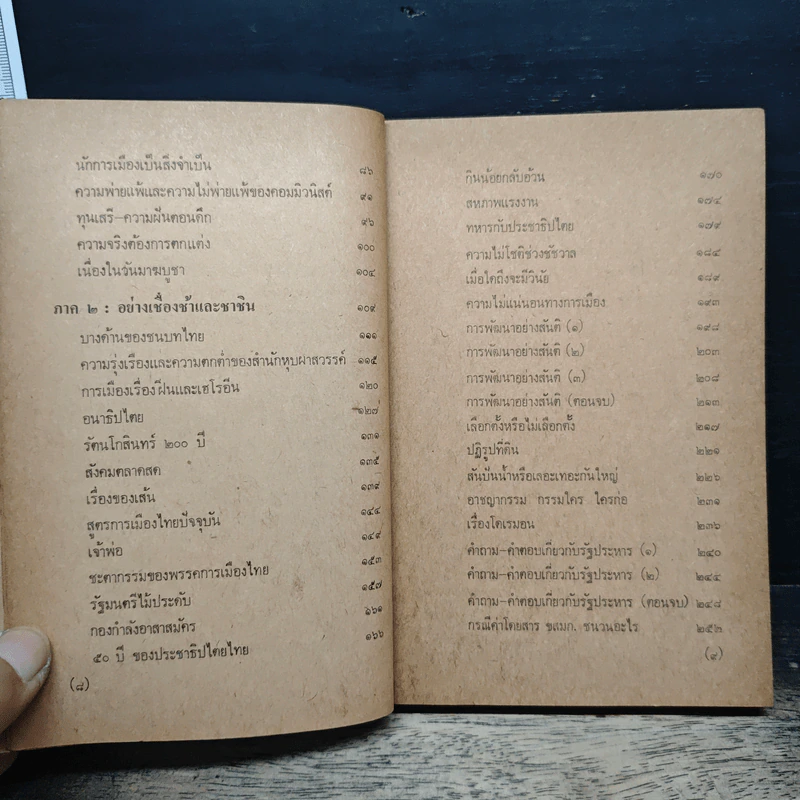 นักการเมืองเป็นสิ่งจำเป็น ๘๖
ความพ่ายแพ้และความไม่พ่ายแพ้ของคอมมิวนิสต์ ๙๑
ทุนเสรี-ความฝันตอนดึก ๙๖
ความจริงต้องการตกแต่ง ๑๐๐
เนื่องในวันมาฆบูชา ๑๐๔
ภาค ๒ : อย่างเชื่องช้าและชาชิน ๑๐๙
บางด้านของชนบทไทย ๑๑๑
ความรุ่งเรืองและความตกต่ำของสำนักหุบผาสวรรค์ ๑๑๕
การเมืองเรื่องฝิ่นและเฮโรอีน ๑๒๐
อนาธิปไตย ๑๒๗
รัตนโกสินทร์ ๒๐๐ ปี ๑๓๑
สังคมตลาดสด ๑๓๕
เรื่องของเส้น ๑๓๙
สูตรการเมืองไทยปัจจุบัน ๑๔๔
เจ้าพ่อ ๑๔๙
ชะตากรรมของพรรคการเมืองไทย ๑๕๓
รัฐมนตรีไม้ประดับ ๑๕๗
กองกำลังอาสาสมัคร ๑๖๑
๕๐ ปี ของประชาธิปไตยไทย ๑๖๖
(๘)
กินน้อยกลับอ้วน ๑๗๐
สหภาพแรงงาน ๑๗๔
ทหารกับประชาธิปไตย ๑๗๙
ความไม่โชติช่วงชัชวาล ๑๘๔
เมื่อใดถึงจะมีวินัย ๑๘๙
ความไม่แน่นอนทางการเมือง ๑๙๓
การพัฒนาอย่างสันติ (๑) ๑๙๘
การพัฒนาอย่างสันติ (๒) ๒๐๓
การพัฒนาอย่างสันติ (๓) ๒๐๘
การพัฒนาอย่างสันติ (ตอนจบ) ๒๑๓
เลือกตั้งหรือไม่เลือกตั้ง ๒๑๗
ปฏิรูปที่ดิน ๒๒๑
สันปันน้ำหรือเลอะเทอะกันใหญ่ ๒๒๖
อาชญากรรม กรรมใคร ใครก่อ ๒๓๑
เรื่องโดเรมอน ๒๓๖
คำถาม-คำตอบเกี่ยวกับรัฐประหาร (๑) ๒๔๐
คำถาม-คำตอบเกี่ยวกับรัฐประหาร (๒) ๒๔๔
คำถาม-คำตอบเกี่ยวกับรัฐประหาร (ตอนจบ) ๒๔๘
กรณีค่าโดยสาร ขสมก. ชนวนอะไร ๒๕๒
(๙)